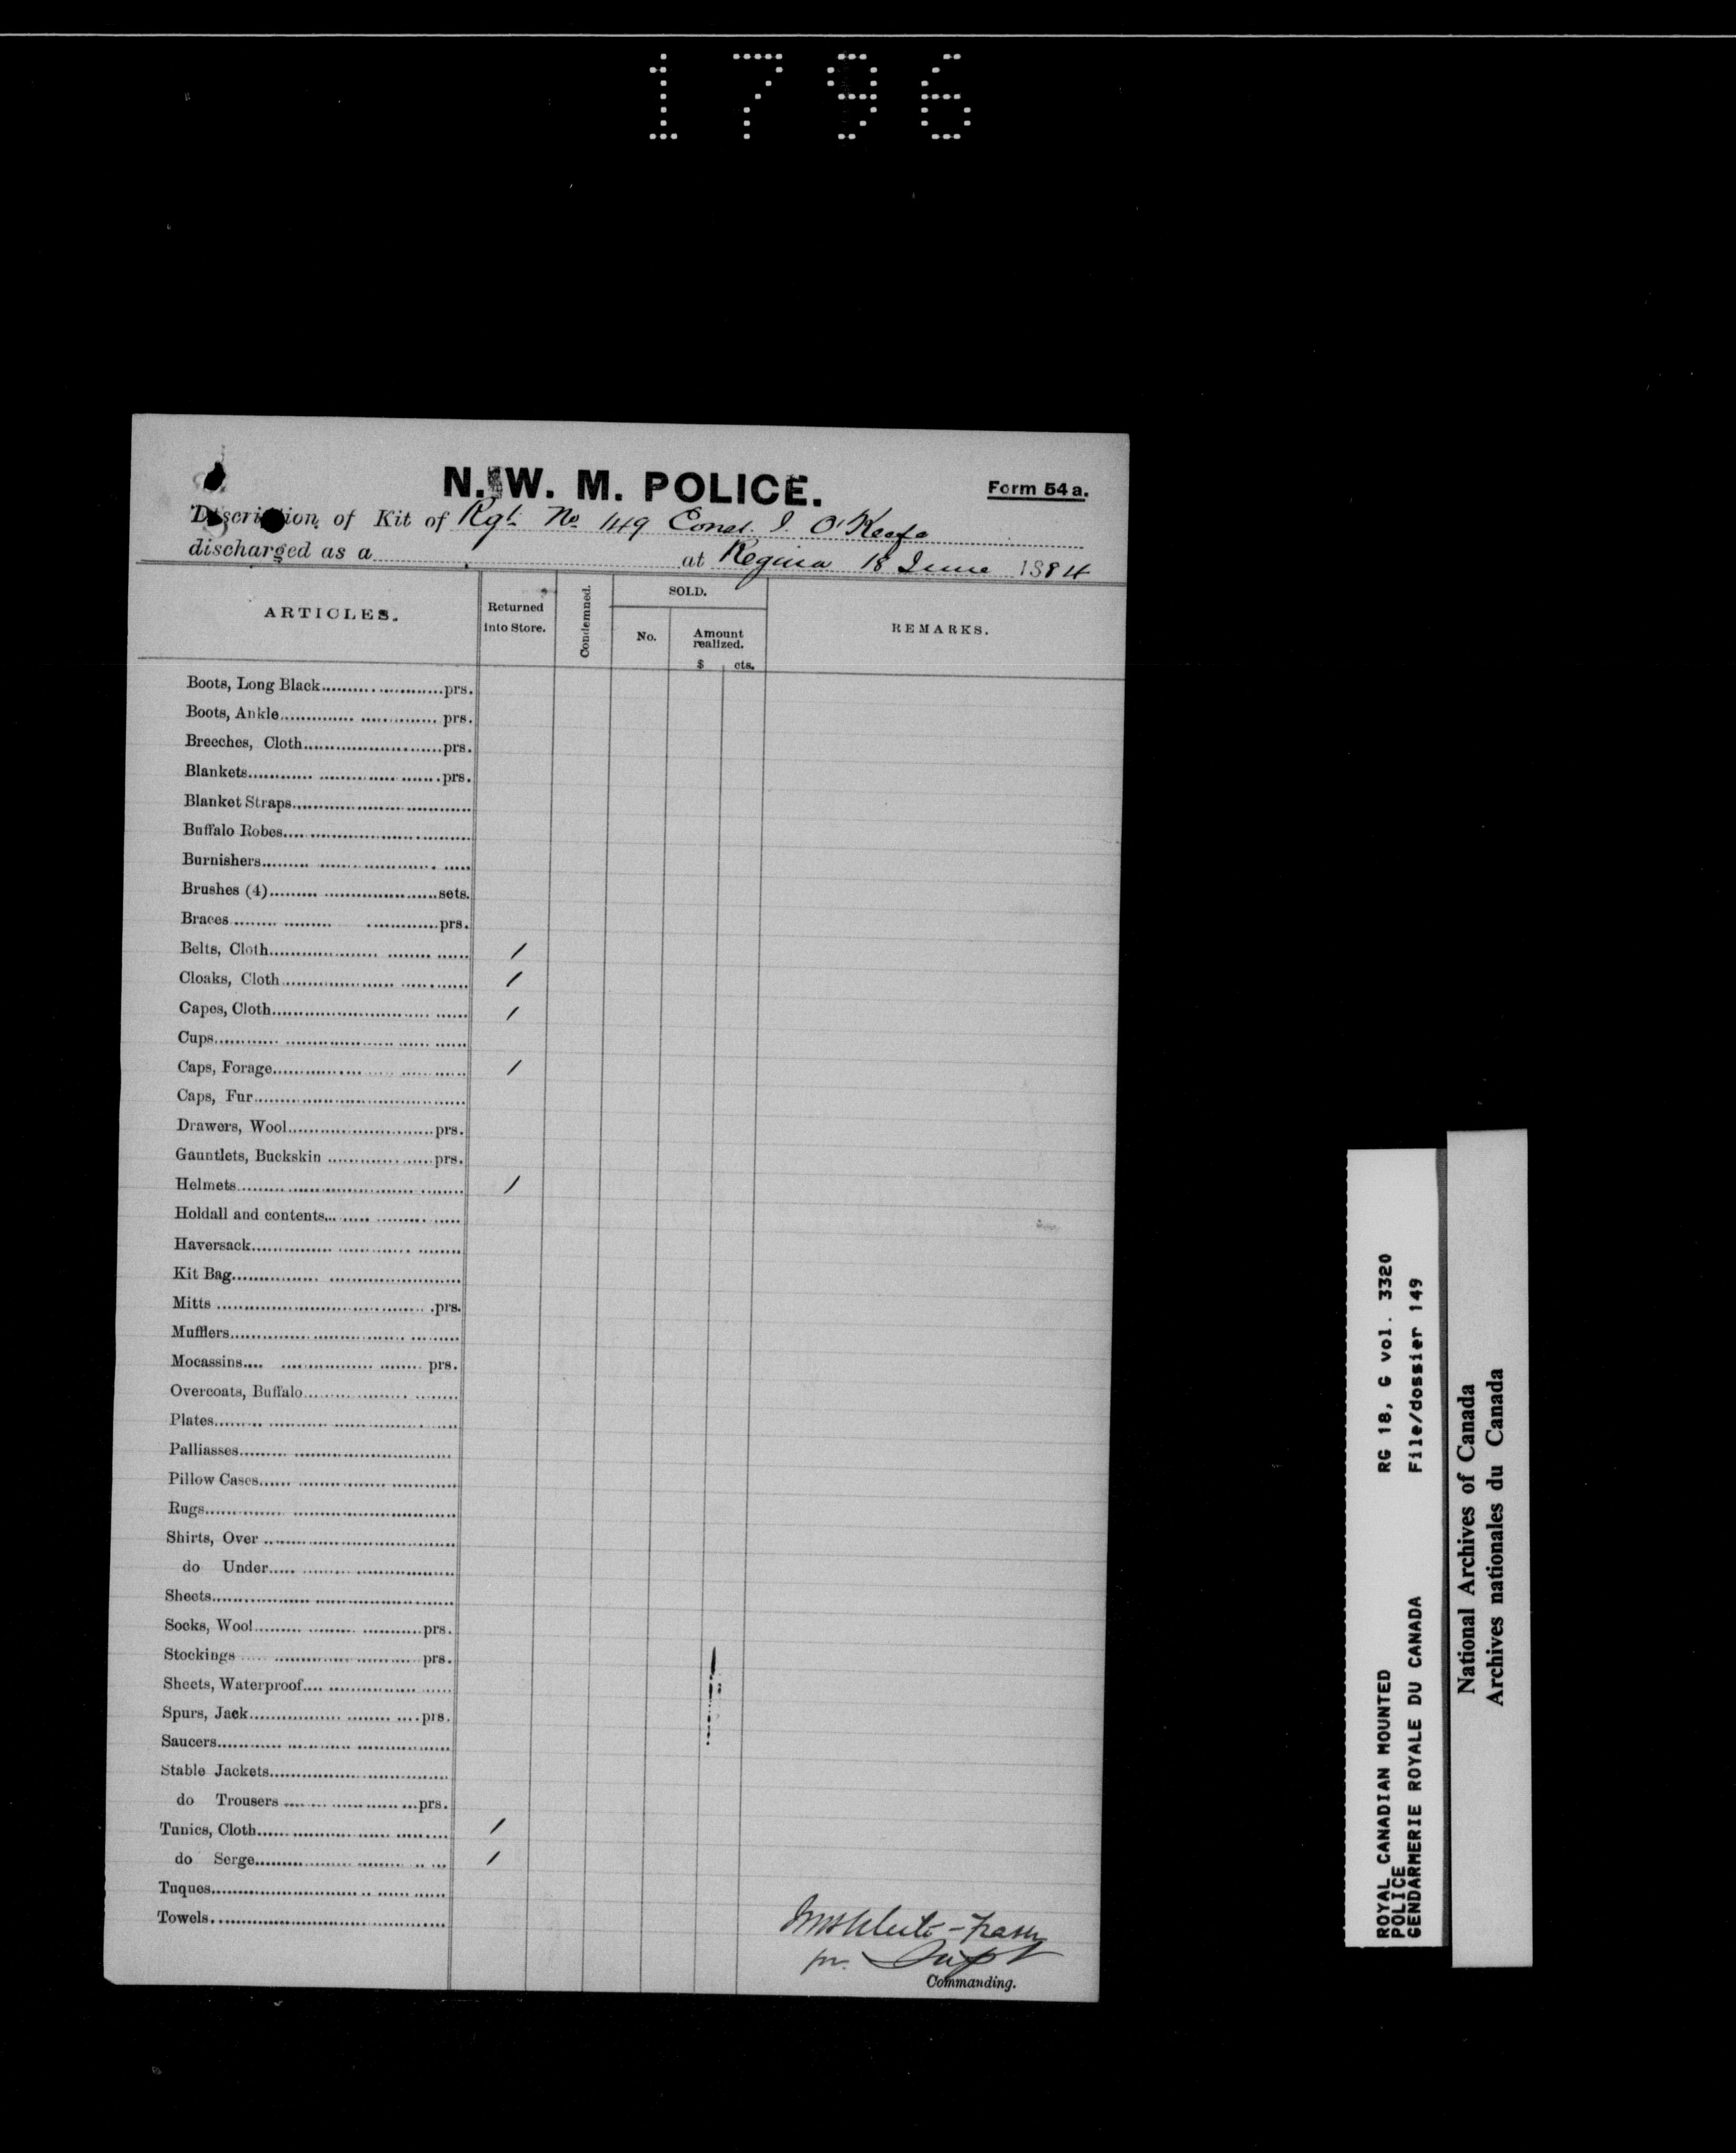 1796
N. W. M. POLICE.
Form 54 a.
Description of Kit of Rgt. No 149 Const. J. O'Keefe
discharged as a at Regina 18 June 1884
ARTICLES.
Returned into Store.
Condemned.
SOLD.
No.
Amount realized.
$ cts.
REMARKS.
Boots, Long Black prs.
Boots, Ankle prs.
Breeches, Cloth prs.
Blankets prs.
Blanket Straps
Buffalo Robes
Burnishers
Brushes (4) sets.
Braces prs.
Belts, Cloth 1
Cloaks, Cloth 1
Capes, Cloth 1
Cups
Caps, Forage 1
Caps, Fur
Drawers, Wool prs.
Gauntlets, Buckskin prs.
Helmets 1
Holdall and contents
Haversack
Kit Bag
Mitts prs.
Mufflers
Mocassins prs.
Overcoats, Buffalo
Plates
Palliasses
Pillow Cases
Rugs
Shirts, Over
do Under
Sheets
Socks, Wool prs.
Stockings prs.
Sheets, Waterproof
Spurs, Jack prs.
Saucers
Stable Jackets
do Trousers prs.
Tunics, Cloth 1
do Serge 1
Tuques
Towels
Supt
Commanding.
ROYAL CANADIAN MOUNTED POLICE
RG 18, G vol. 3320
GENDARMERIE ROYALE DU CANADA
File/dossier 149
National Archives of Canada
Archives nationales du Canada